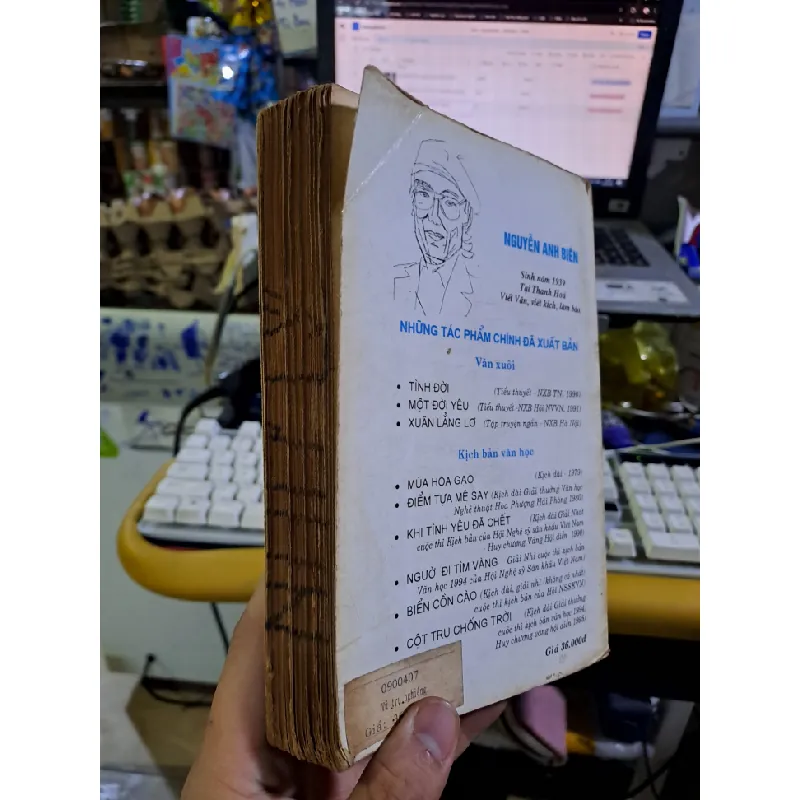 NGUYỄN ANH BIÊN
Sinh năm 1939
Tại Thanh Hoá
Viết Văn, viết kịch, làm báo
NHỮNG TÁC PHẨM CHÍNH ĐÃ XUẤT BẢN
Văn xuôi
• TÌNH ĐỜI (Tiểu thuyết - NXB TN.
• MỘT ĐỜI YÊU (Tiểu thuyết -NXB Hội NVVN,
• XUÂN LẲNG LƠ (Tập truyện ngắn - NXB Hà Nội)
Kịch bản văn học
• MÙA HOA GẠO (Kịch dài - 1979)
• ĐIỂM TỰA MÊ SAY (Kịch dài Giải thưởng Văn học
Nghệ thuật Hoa Phượng Hải Phòng
• KHI TÌNH YÊU ĐÃ CHẾT (Kịch dài Giải Nhất
cuộc thi Kịch bản của Hội Nghệ sỹ sân khấu Việt Nam
Huy chương Vàng Hội diễn
• NGƯỜI ĐI TÌM VÀNG Giải Nhì cuộc thi kịch bản
Văn học 1994 của Hội Nghệ sỹ Sân khấu Việt Nam)
• BIỂN CÔN CÀO (Kịch dài, giải nhì không có nhất)
cuộc thi kịch bản của Hội NSSKVN)
• CỘT TRỤ CHỐNG TRỜI (Kịch dài Giải thưởng
cuộc thi kịch bản văn học 1994,
Huy chương vàng hội diễn 1995)
Giá 36.000đ
0900407
Giá: